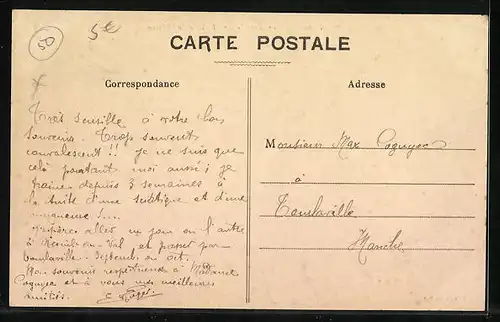 50
5e
CARTE POSTALE
Correspondance
Adresse
Très sensible à votre bon
souvenir. Trop souvent
convalescent !! Je ne suis que
celà pourtant moi aussi ; je
traine depuis 3 semaines à
la suite d'une et d'une
!...
aller un jour ou l'autre
à Val et passer par
Tourlaville. Septembre ou Oct.
Mon souvenir respectueux à Madame
et à vous mes meilleures
amitiés.
Monsieur Max
à
Tourlaville
Manche